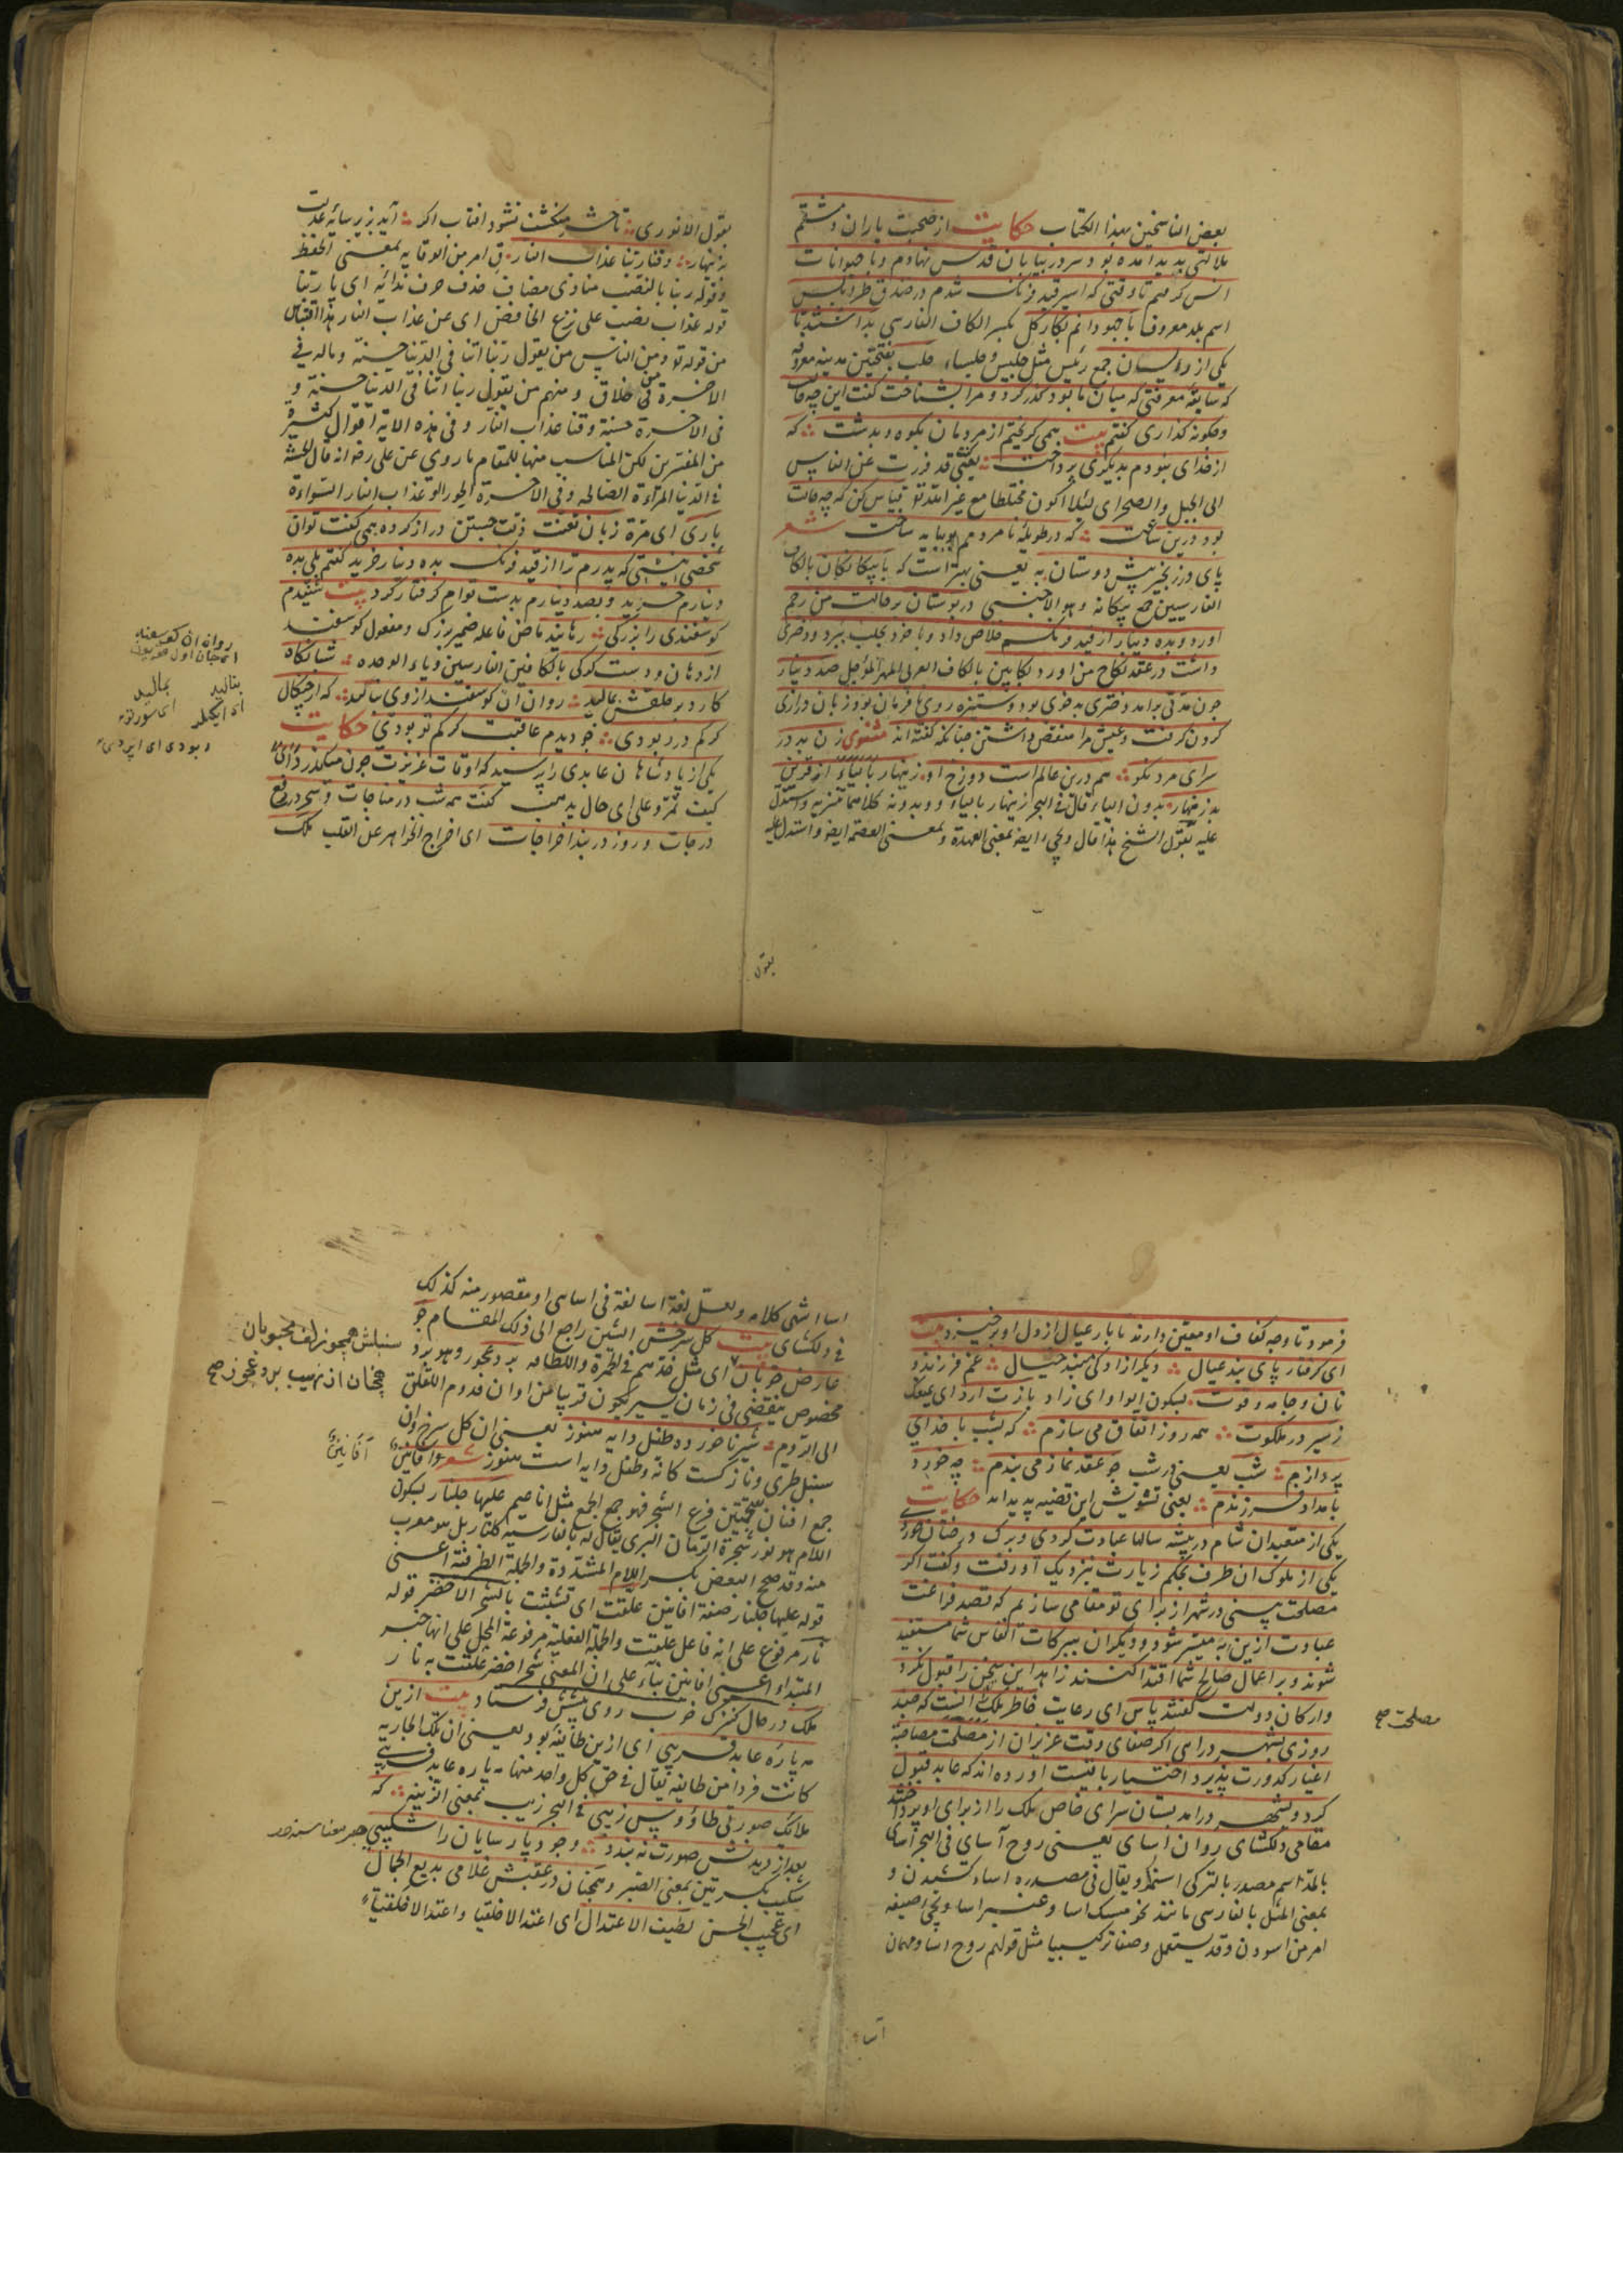 بعض الناسخین بهذا الکتاب حکایت از صحبت یاران دمشقم
ملالتی پدید امده بود سر در بیابان قدس نهادم و با حیوانات
انس کرفتم تا وقتی که اسیر قید فرنک شدم در خندق طرابلس
اسم بلد معروف با جهودانم بکار کل بکسر الکاف الفارسی بداشتند تا
یکی از رؤسان جمع رئیس مثل جلیس وجلساء حلب بفتحتین مدینه معروفه
که سابقه معرفتی که میان ما بود کذر کرد و مرا بشناخت کفت این چه حالت
وچکونه کذاری کفتم بیت همی کریختم از مردمان بکوه و بدشت که
از خدای نبودم بدیکری پرداخت یعنی قد فررت عن الناس
الی الجبل والصحرای لئلا اکون مختلطا مع غیر الله تع قیاس کن که چه حالت
بود درین ساعت که در طویله نامردمم بباید ساخت شعر
پای در زنجیر پیش دوستان به یعنی بهتر است که با بیکانکان بالکاف
الفارسیین جمع بیکانه وهو الاجنبی در بوستان بر حالت من رحم
اورد و بده دینار از قید فرنکم خلاص داد و با خود بحلب ببرد ودختری
داشت در عقد نکاح من اورد بکابین بالکاف العربی المهر المؤجل صد دینار
چون مدتی برامد دختری بدخوی بود وستیزه روی نافرمان بود زبان درازی
کردن کرفت وعیش مرا منغص داشتن چنانکه کفته اند مثنوی زن بد در
سرای مرد نکو هم درین عالم است دوزخ او زینهار بالیاء از قرین
بد زنهار بدون الیاء قال فی البحر زینهار بالیاء وبدونه کلاهما بمعنی واستدل
علیه بقول الشیخ هذا قال ویجیء ایضا بمعنی العهدة وبمعنی العصمة ایضا واستدل علیه
بقول
بقول الانوری تا حشر منکشف نشود افتاب اکر آید بزیر سایه عدلت
بزینهار وقنا ربنا عذاب النار ق امر من الوقایه بمعنی الحفظ
وقوله ربنا بالنصب منادی مضاف حذف حرف ندائه ای یا ربنا
قوله عذاب نصب علی نزع الخافض ای عن عذاب النار هذا اقتباس
من قوله تع ومن الناس من یقول ربنا اتنا فی الدنیا حسنة وماله فی
الاخرة من خلاق ومنهم من یقول ربنا اتنا فی الدنیا حسنة و
فی الاخرة حسنة وقنا عذاب النار وفی هذه الایة اقوال کثیرة
من المفسرین لکن المناسب منها للمقام ما روی عن علی رضه انه قال الحسنة
فی الدنیا المرأة الصالحه وفی الاخرة الحور وعذاب النار السواءة
باری ای مرة زبان تعنت ذلت جستن دراز کرده همی کفت توان
شخصی نیستی که پدرم ترا از قید فرنک بده دینار خرید کفتم بلی بده
دینارم خرید وبصد دینارم بدست تو ام کرفتار کرد بیت شنیدم
کوسفندی را بزرکی رهانید ماض فاعله ضمیر بزرک ومفعول کوسفند
از دهان ودست کرکی بالکافین الفارسین ویاء الوحده شبانکاه
کارد بر حلقش بمالید روان ان کوسفند از وی بنالید که از چنکال
کرکم در ربودی چو دیدم عاقبت کرکم تو بودی حکایت
یکی از پادشاهان عابدی را پرسید که اوقات عزیزت چون میکذرد ای
کیف تمر وعلی ای حال یذهب کفت همه شب در مناجات وسحر در رفع
درجات و روز در بند اخراجات ای اخراج الخواهر عن القلب ملک
روان ان کوسفند
بنالید بمالید
ای ایکلر ای سورتر
ربودی
فرمود تا وجه کفاف او معین دارند تا بار عیال از دل او برخیزد بیت
ای کرفتار پای بند عیال دیکر ازادکی مبند خیال غم فرزند و
نان وجامه وقوت بسکون الواو ای زاد بازت ارد ای یمنعک
زسیر در ملکوت همه روز اتفاق می سازم که بشب با خدای
پردازم شب یعنی در شب چو عقد نماز می بندم چه خورد
بامداد فرزندم یعنی تشویش این قضیه پدید اید حکایت
یکی از متعبدان شام در بیشه سالها عبادت کردی وبرک درختان خوردی
یکی از ملوک ان طرف بحکم زیارت بنزدیک او رفت وکفت اکر
مصلحت بینی در شهر از برای تو مقامی سازیم که قصد فراغت
عبادت ازین به میسر شود ودیکران ببرکات انفاس شما مستفید
شوند وبر اعمال صالح شما اقتدا کنند زاهد این سخن را قبول نکرد
وارکان دولت کفتند پاس ای رعایت خاطر ملک انست که چند
روزی بشهر درایی اکر صفای وقت عزیزان از مصلحت مصاحبة
اغیار کدورت پذیرد اختیار باقیست اورده اند که عابد قبول
کرد وبشهر درامد بستان سرای خاص ملک را از برای او پرداختند
مقامی دلکشای روان اسای یعنی روح آسای فی البحر اسای
بالمد اسم مصدر بالترکی اسنمک ویقال فی مصدره اساء کشیدن و
بمعنی المثل بالفارسی مانند نحو مسک اسا وعنبر اسا ویجیء صیغه
امر من اسودن وقد یستعمل وصفا ترکیبیا مثل قولهم روح اسا ومهمان
مصلحت صح
آسا
اسا انتهی کلامه ولعل لغة اسا لغة فی اسای او مقصور منه کذلک
فی دلکشای بیت کل سرخش الشین راجع الی ذلک المقام چو
عارض خوبان ای مثل خدهم فی الحمرة واللطافه برد عجوز وهو برد
مخصوص ینقضی فی زمان یسیر یکون قریبا من اوان قدوم اللقلق
الی الروم شیر ناخورده طفل دایه هنوز یعنی ان کل سرخ وان
سنبل طری ونازکست کانه طفل دایه است هنوز شعر وافانین
جمع افنان بفتحتین فرع الشجر فهو جمع الجمع مثل اناعیم علیها جلنار بسکون
اللام هو نور شجرة الرمان البری یقال له بالفارسیه کلنار بل هو معرب
منه وقد صحح البعض بکسر اللام المشددة والجملة الظرفیة اعنی
قوله علیها جلنار صفة افانین علقت ای تشبثت بالشجر الاخضر قوله
نار مرفوع علی انه فاعل علقت والجملة الفعلیة مرفوعة المحل علی انها خبر
المبتداء اعنی افانین بناء علی ان المعنی شجر اخضر علقت به نار
ملک در حال کنیزک خوب روی پیشش فرستاد بیت ازین
مه پاره عابد فریبی ای ازین طائفه بود یعنی ان تلک الجاریه
کانت فردا من طائفه یقال فی حق کل واحد منها مه پاره عابد فریبی
ملائک صورتی طاؤوس زیبی فی البحر زیب بمعنی الزینة که
بعد از دیدنش صورت نه بندد وجود پارسایان را شکیبی
شکیب بکسرتین بمعنی الصبر وهمچنان در عقبش غلامی بدیع الجمال
ای عجیب الحسن لطیف الاعتدال ای اعتدالا خلقیا واعتدالا خلقیا
سنبلش همچو زلف محبوبان
همچنان از نهیب برد عجوز صح
آفانین